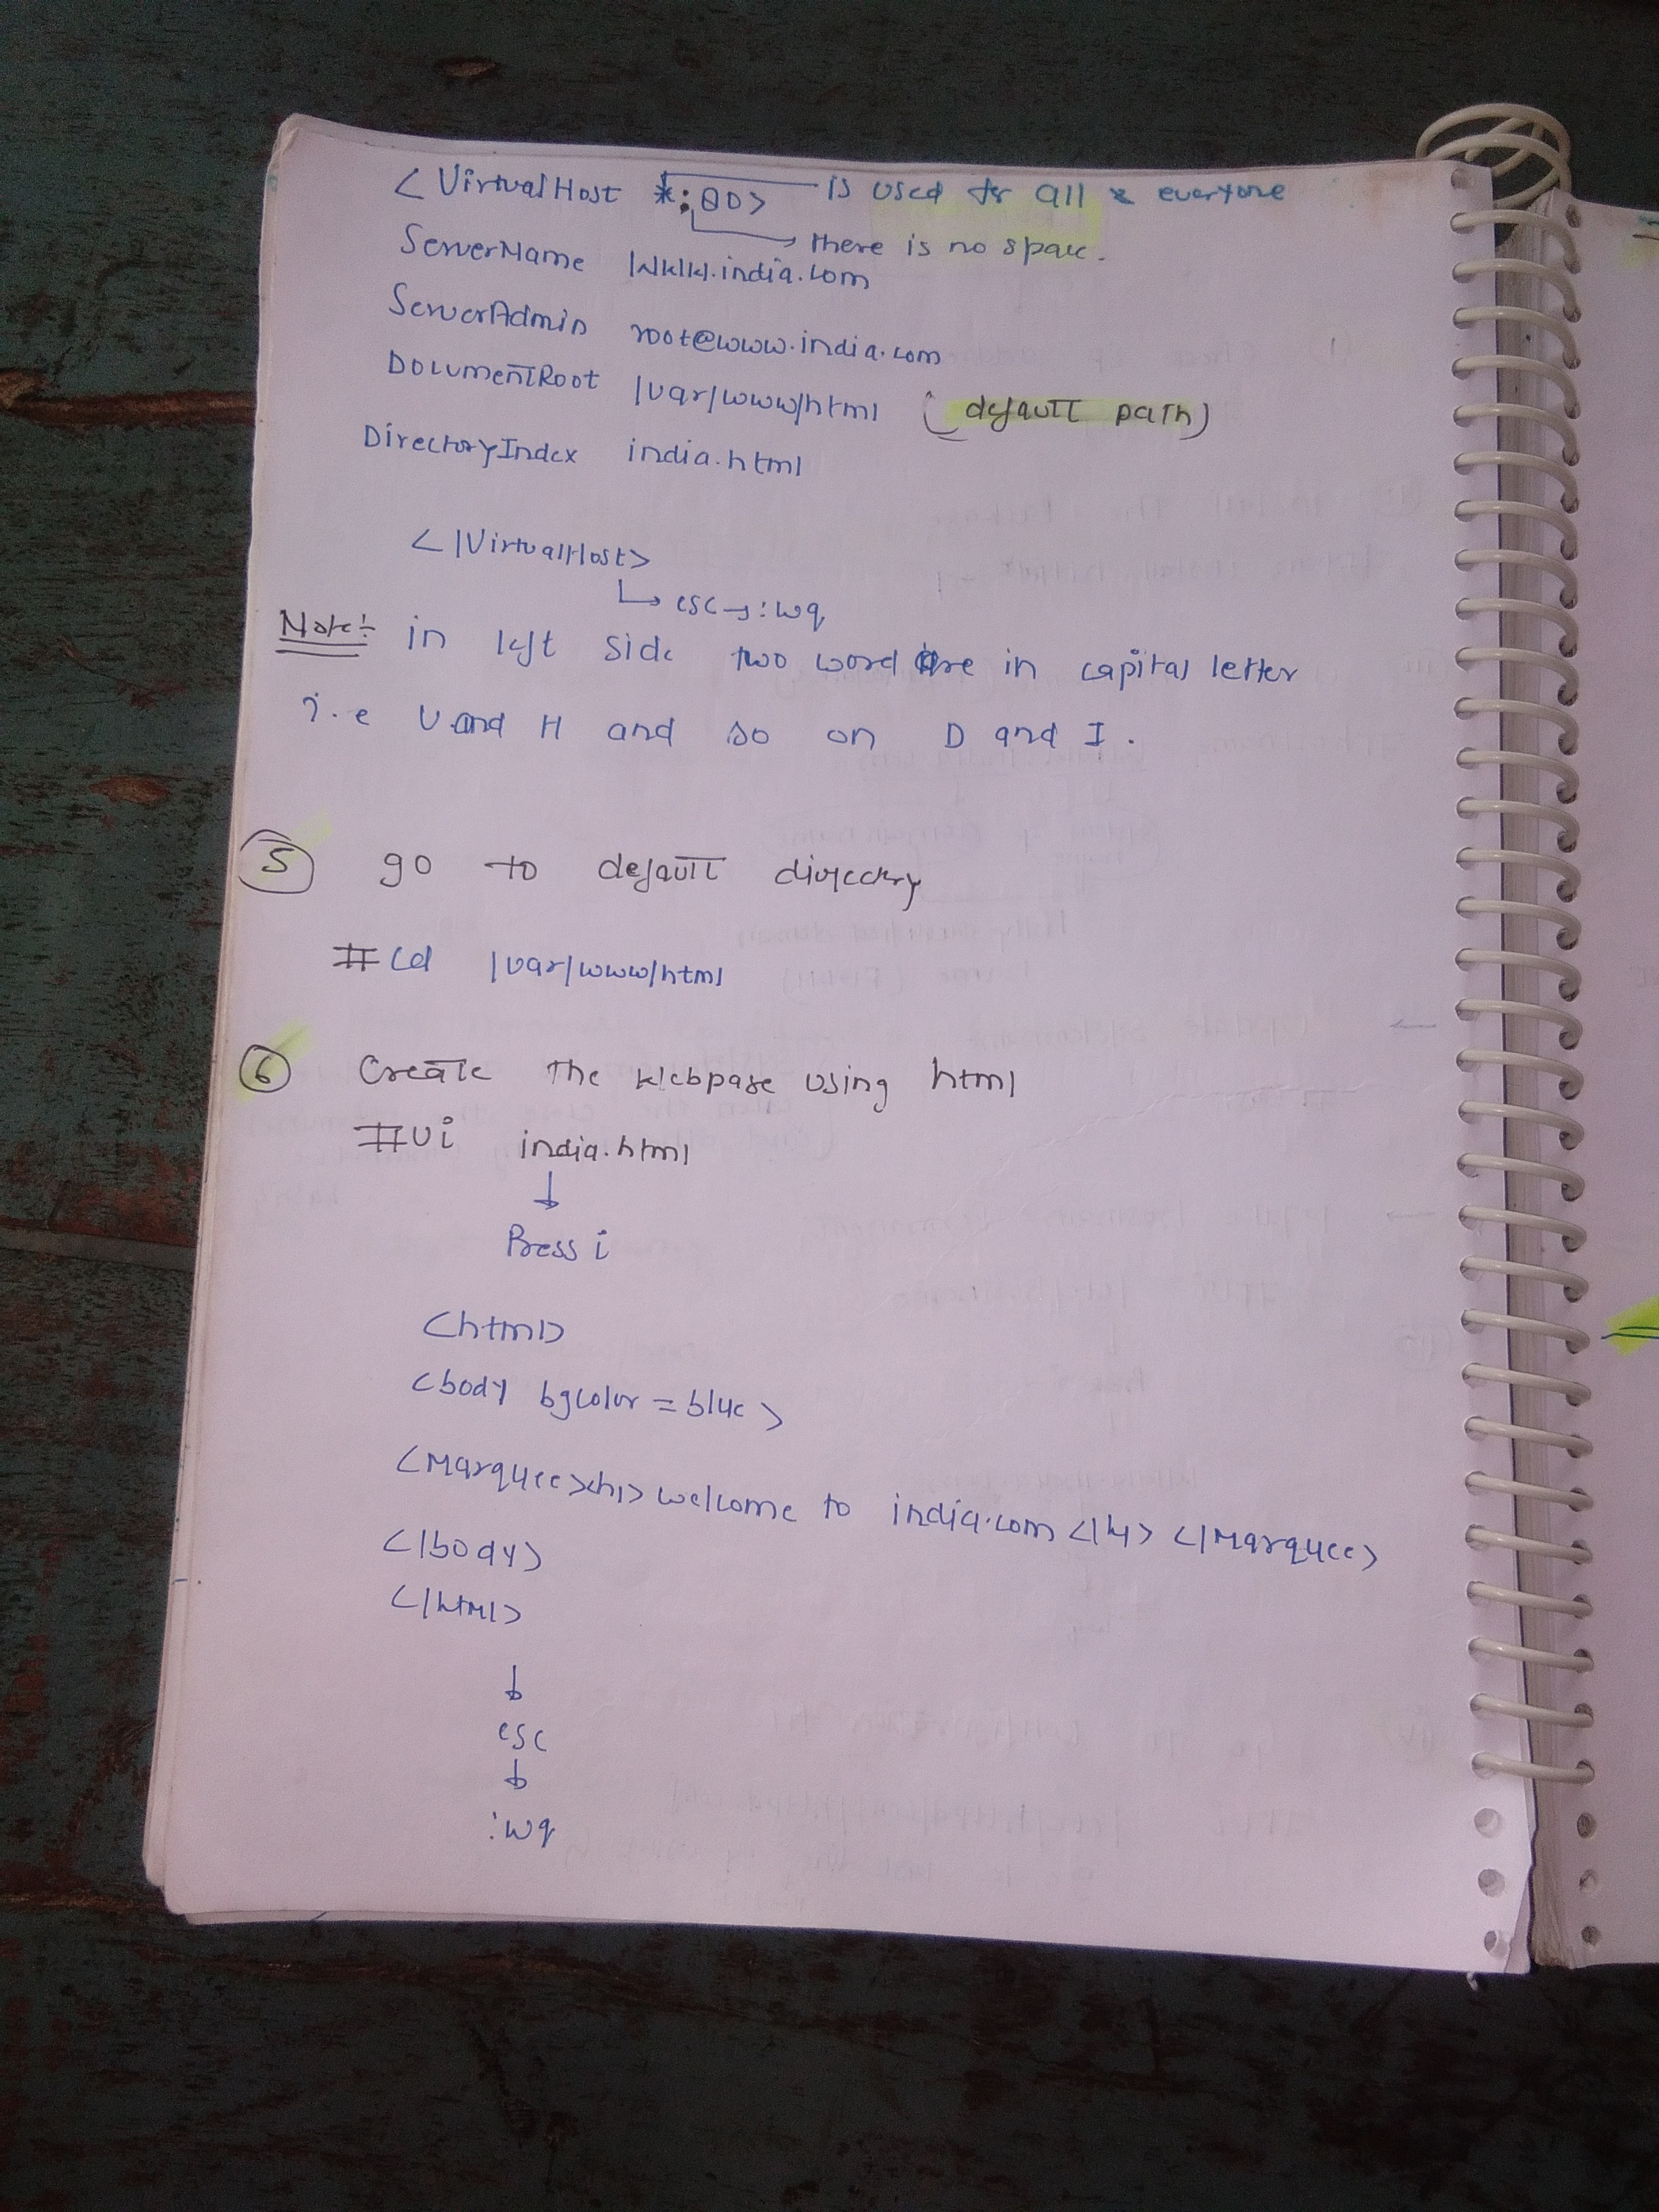 <VirtualHost *:80> is used for all & everyone
there is no space.
ServerName www.india.com
ServerAdmin root@www.india.com
DocumentRoot /var/www/html (default path)
DirectoryIndex india.html
</VirtualHost>
esc → :wq
Note:- in left side two word are in capital letter
i.e V and H and so on D and I.
5 go to default directory
#cd /var/www/html
6 Create The Webpage using html
#vi india.html
Press i
<html>
<body bgcolor = blue>
<Marquee><h1> welcome to india.com </h1> </Marquee>
</body>
</html>
esc
:wq